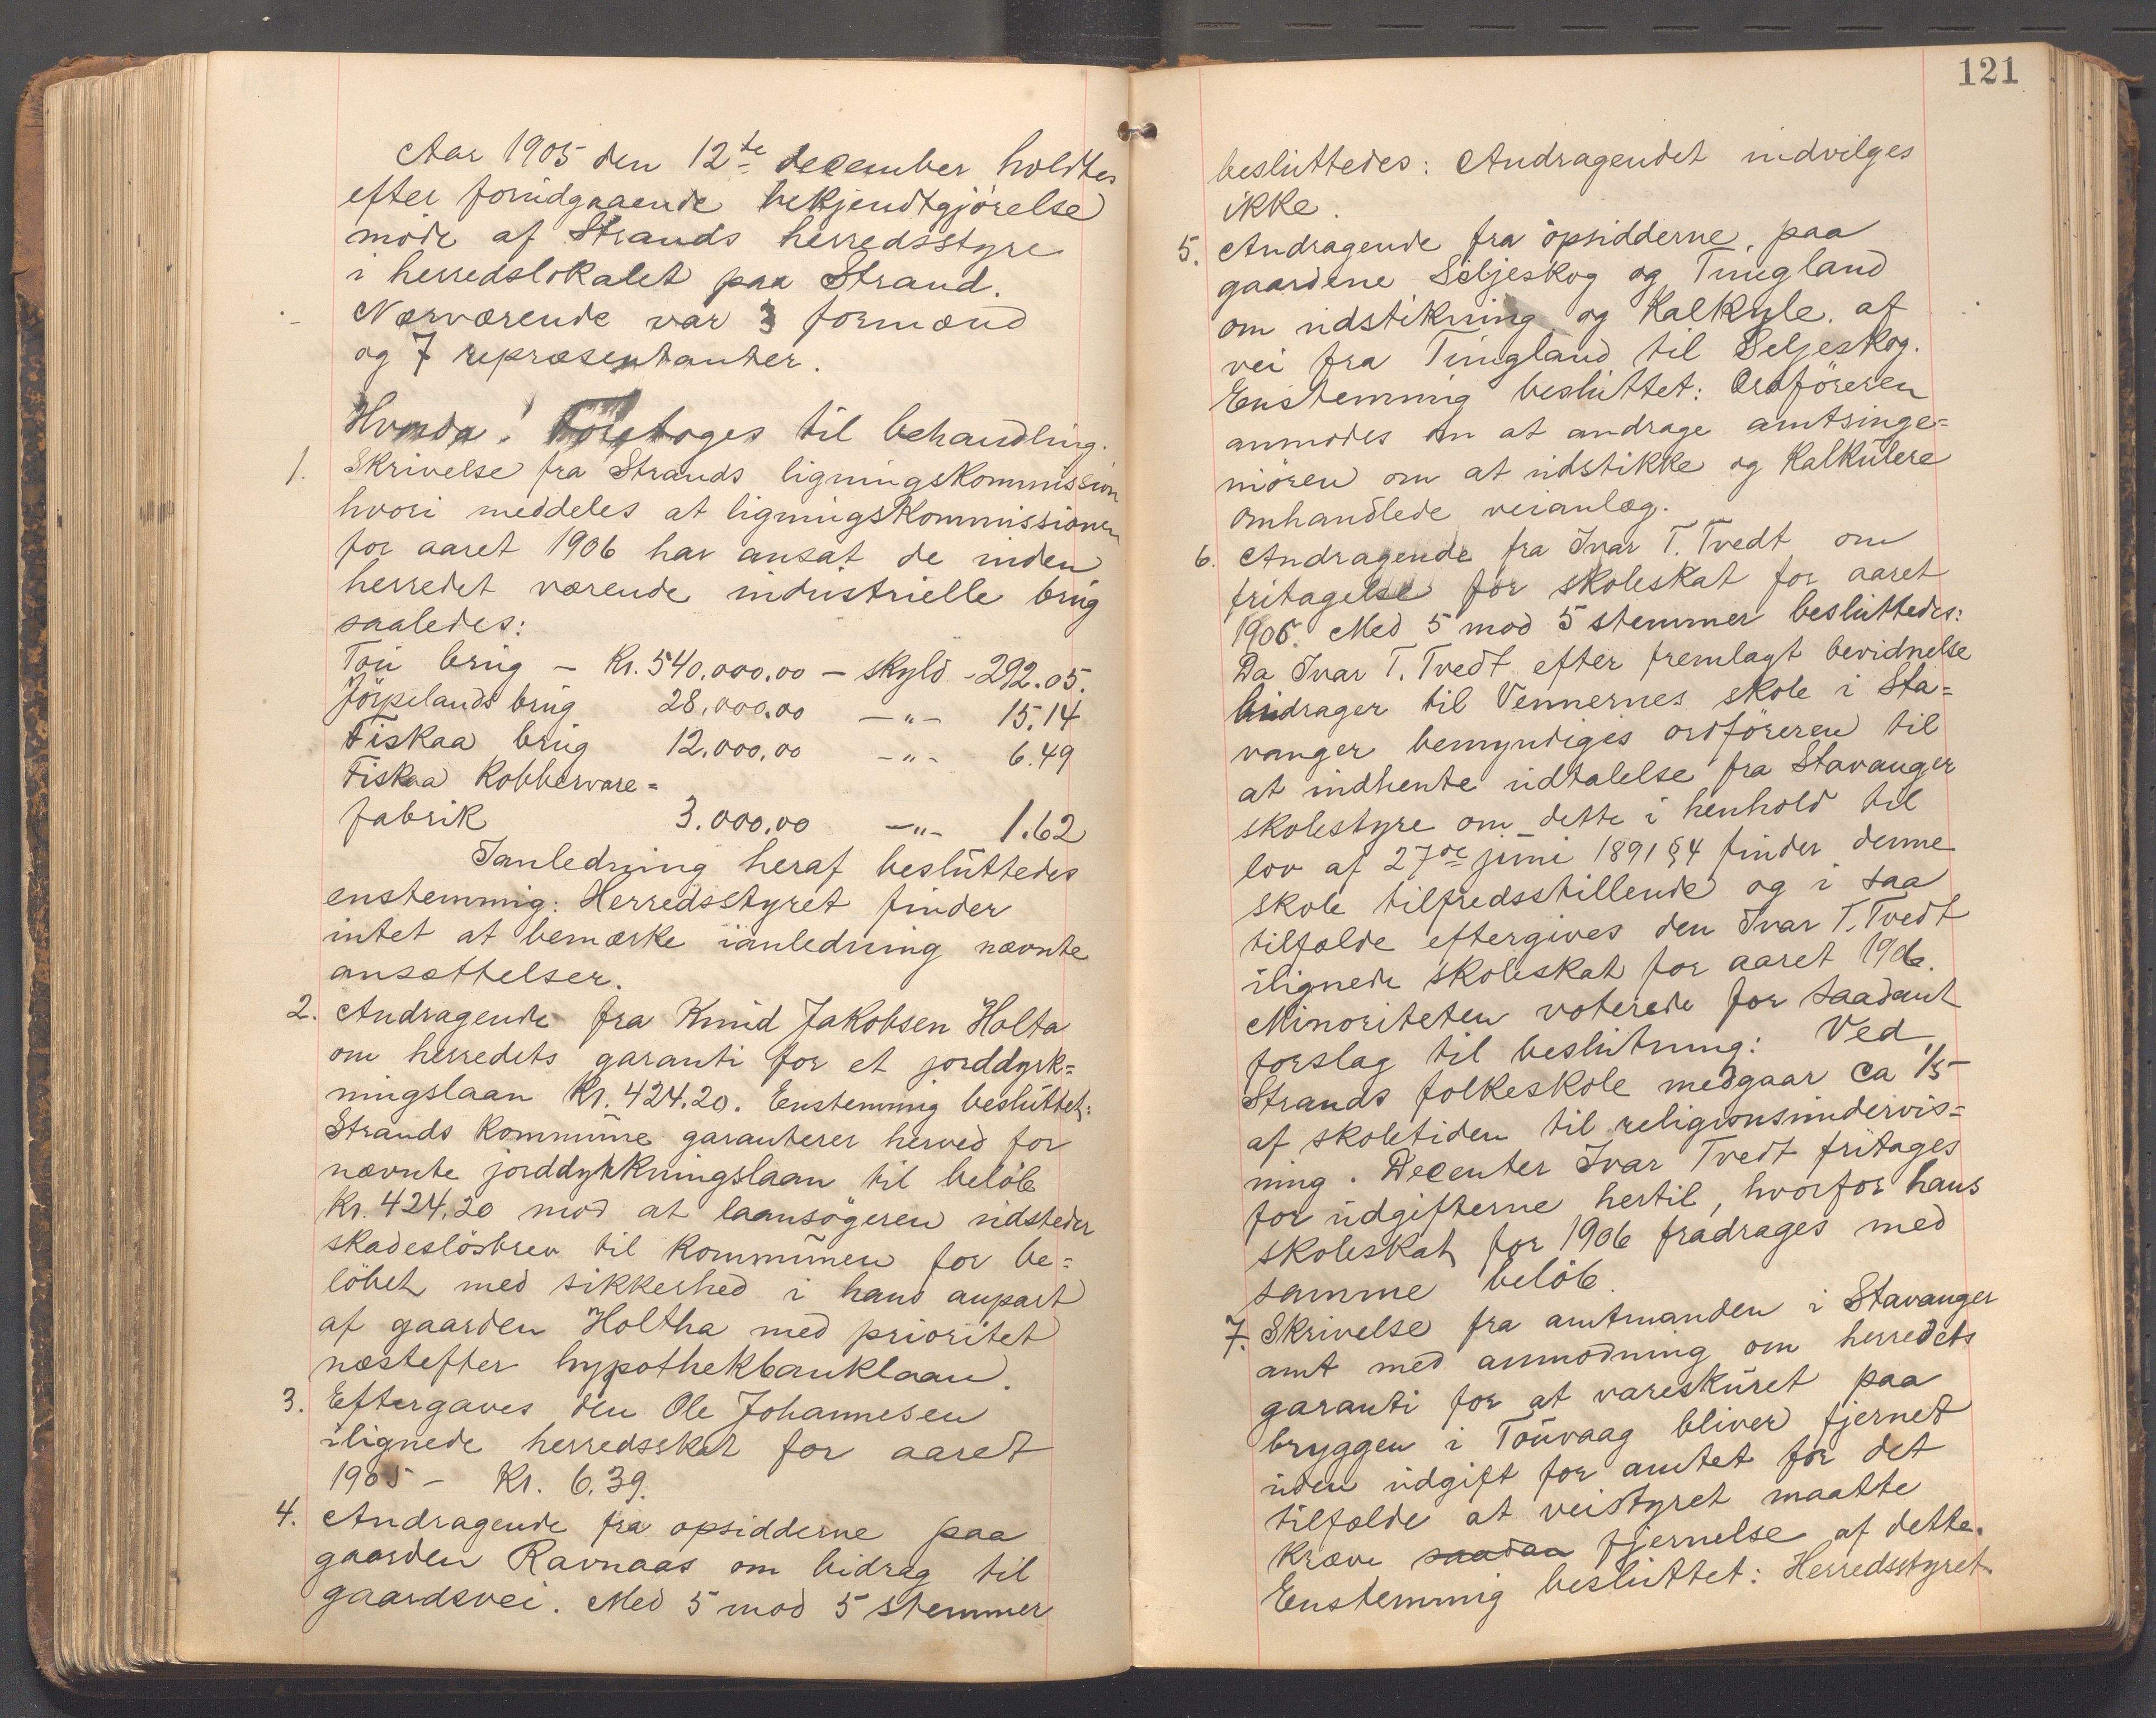 Aar 1905 den 12te december holdtes
efter forudgaaende bekjendtgjörelse
möde af Strands herredsstyre
i herredslokalet paa Strand.
Nærværende var 3 formænd
og 7 repræsentanter.
Hvorda: Foretoges til behandling.
1. Skrivelse fra Strands ligningskommission
hvori meddeles at ligningskommissionen
for aaret 1906 har ansat de inden
herredet værende industrielle brug
saaledes:
Tou brug - Kr. 540.000.00 - skyld - 292.05.
Jörpelands brug 28.000.00 -"- 15.14
Fiskaa brug 12.000.00 -"- 6.49
Fiskaa Kobbervare=
fabrik 3.000.00 -"- 1.62
Ianledning heraf besluttedes
enstemmig: Herredsstyret finder
intet at bemærke ianledning nævnte
ansættelser.
2. Andragende fra Knud Jakobsen Holta
om herredets garanti for et jorddyrk=
ningslaan Kr. 424.20. Enstemmig besluttet:
Strands kommune garanterer herved for
nævnte jorddyrkningslaan til belöb
Kr. 424.20 mod at laansögeren udsteder
skadeslösbrev til kommunen for be=
löbet med sikkerhed i hans anpart
af gaarden Holtha med prioritet
næstefter hypothekbanklaan.
3. Eftergaves den Ole Johannesen
ilignede herredsskat for aaret
1905 - Kr. 6.39.
4. Andragende fra opsidderne paa
gaarden Ravnaas om bidrag til
gaardsvei. Med 5 mod 5 stemmer
121
besluttedes: Andragendet indvilges
ikke.
5. Andragende fra opsidderne paa
gaardene Seljeskog og Tungland
om udstikning og Kalkyle af
vei fra Tungland til Seljeskog.
Enstemmig besluttet: Ordföreren
anmodes om at andrage amtsinge=
niören om at udstikke og Kalkulere
omhandlede veianlæg.
6. Andragende fra Ivar T. Tvedt om
fritagelse for skoleskat for aaret
1906. Med 5 mod 5 stemmer besluttedes:
Da Ivar T. Tvedt efter fremlagt bevidnelse
bidrager til Vennernes skole i Sta=
vanger bemyndiges ordföreren til
at indhente udtalelse fra Stavanger
skolestyre om dette i henhold til
lov af 27de juni 1891 §4 finder denne
skole tilfredsstillende og i saa
tilfælde eftergives den Ivar T. Tvedt
ilignede skoleskat for aaret 1906.
Minoriteten voterede for saadant
forslag til beslutning: Ved
Strands folkeskole medgaar ca 1/5
af skoletiden til religionsundervis=
ning. Decenter Ivar Tvedt fritages
for udgifterne hertil, hvorfor hans
skoleskat for 1906 fradrages med
samme belöb.
7. Skrivelse fra amtmanden i Stavanger
amt med anmodning om herredets
garanti for at vareskuret paa
bryggen i Touvaag bliver fjernet
uden udgift for amtet for det
tilfælde at veistyret maatte
kræve saadan fjernelse af dette.
Enstemmig besluttet: Herredsstyret